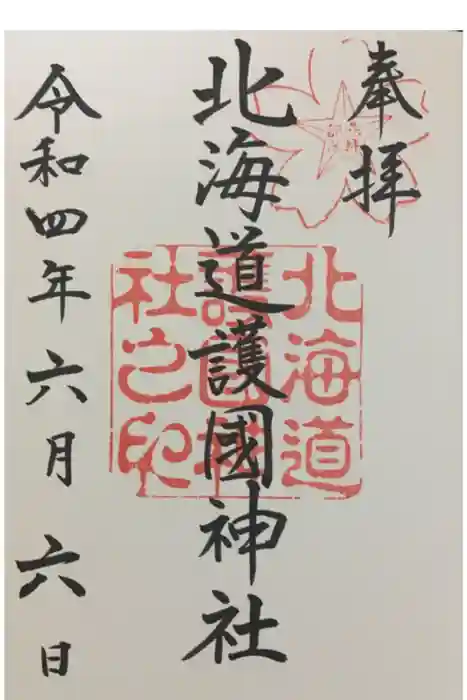 奉拝
北海道護國神社
北海道
護國神
社之印
令和四年六月六日